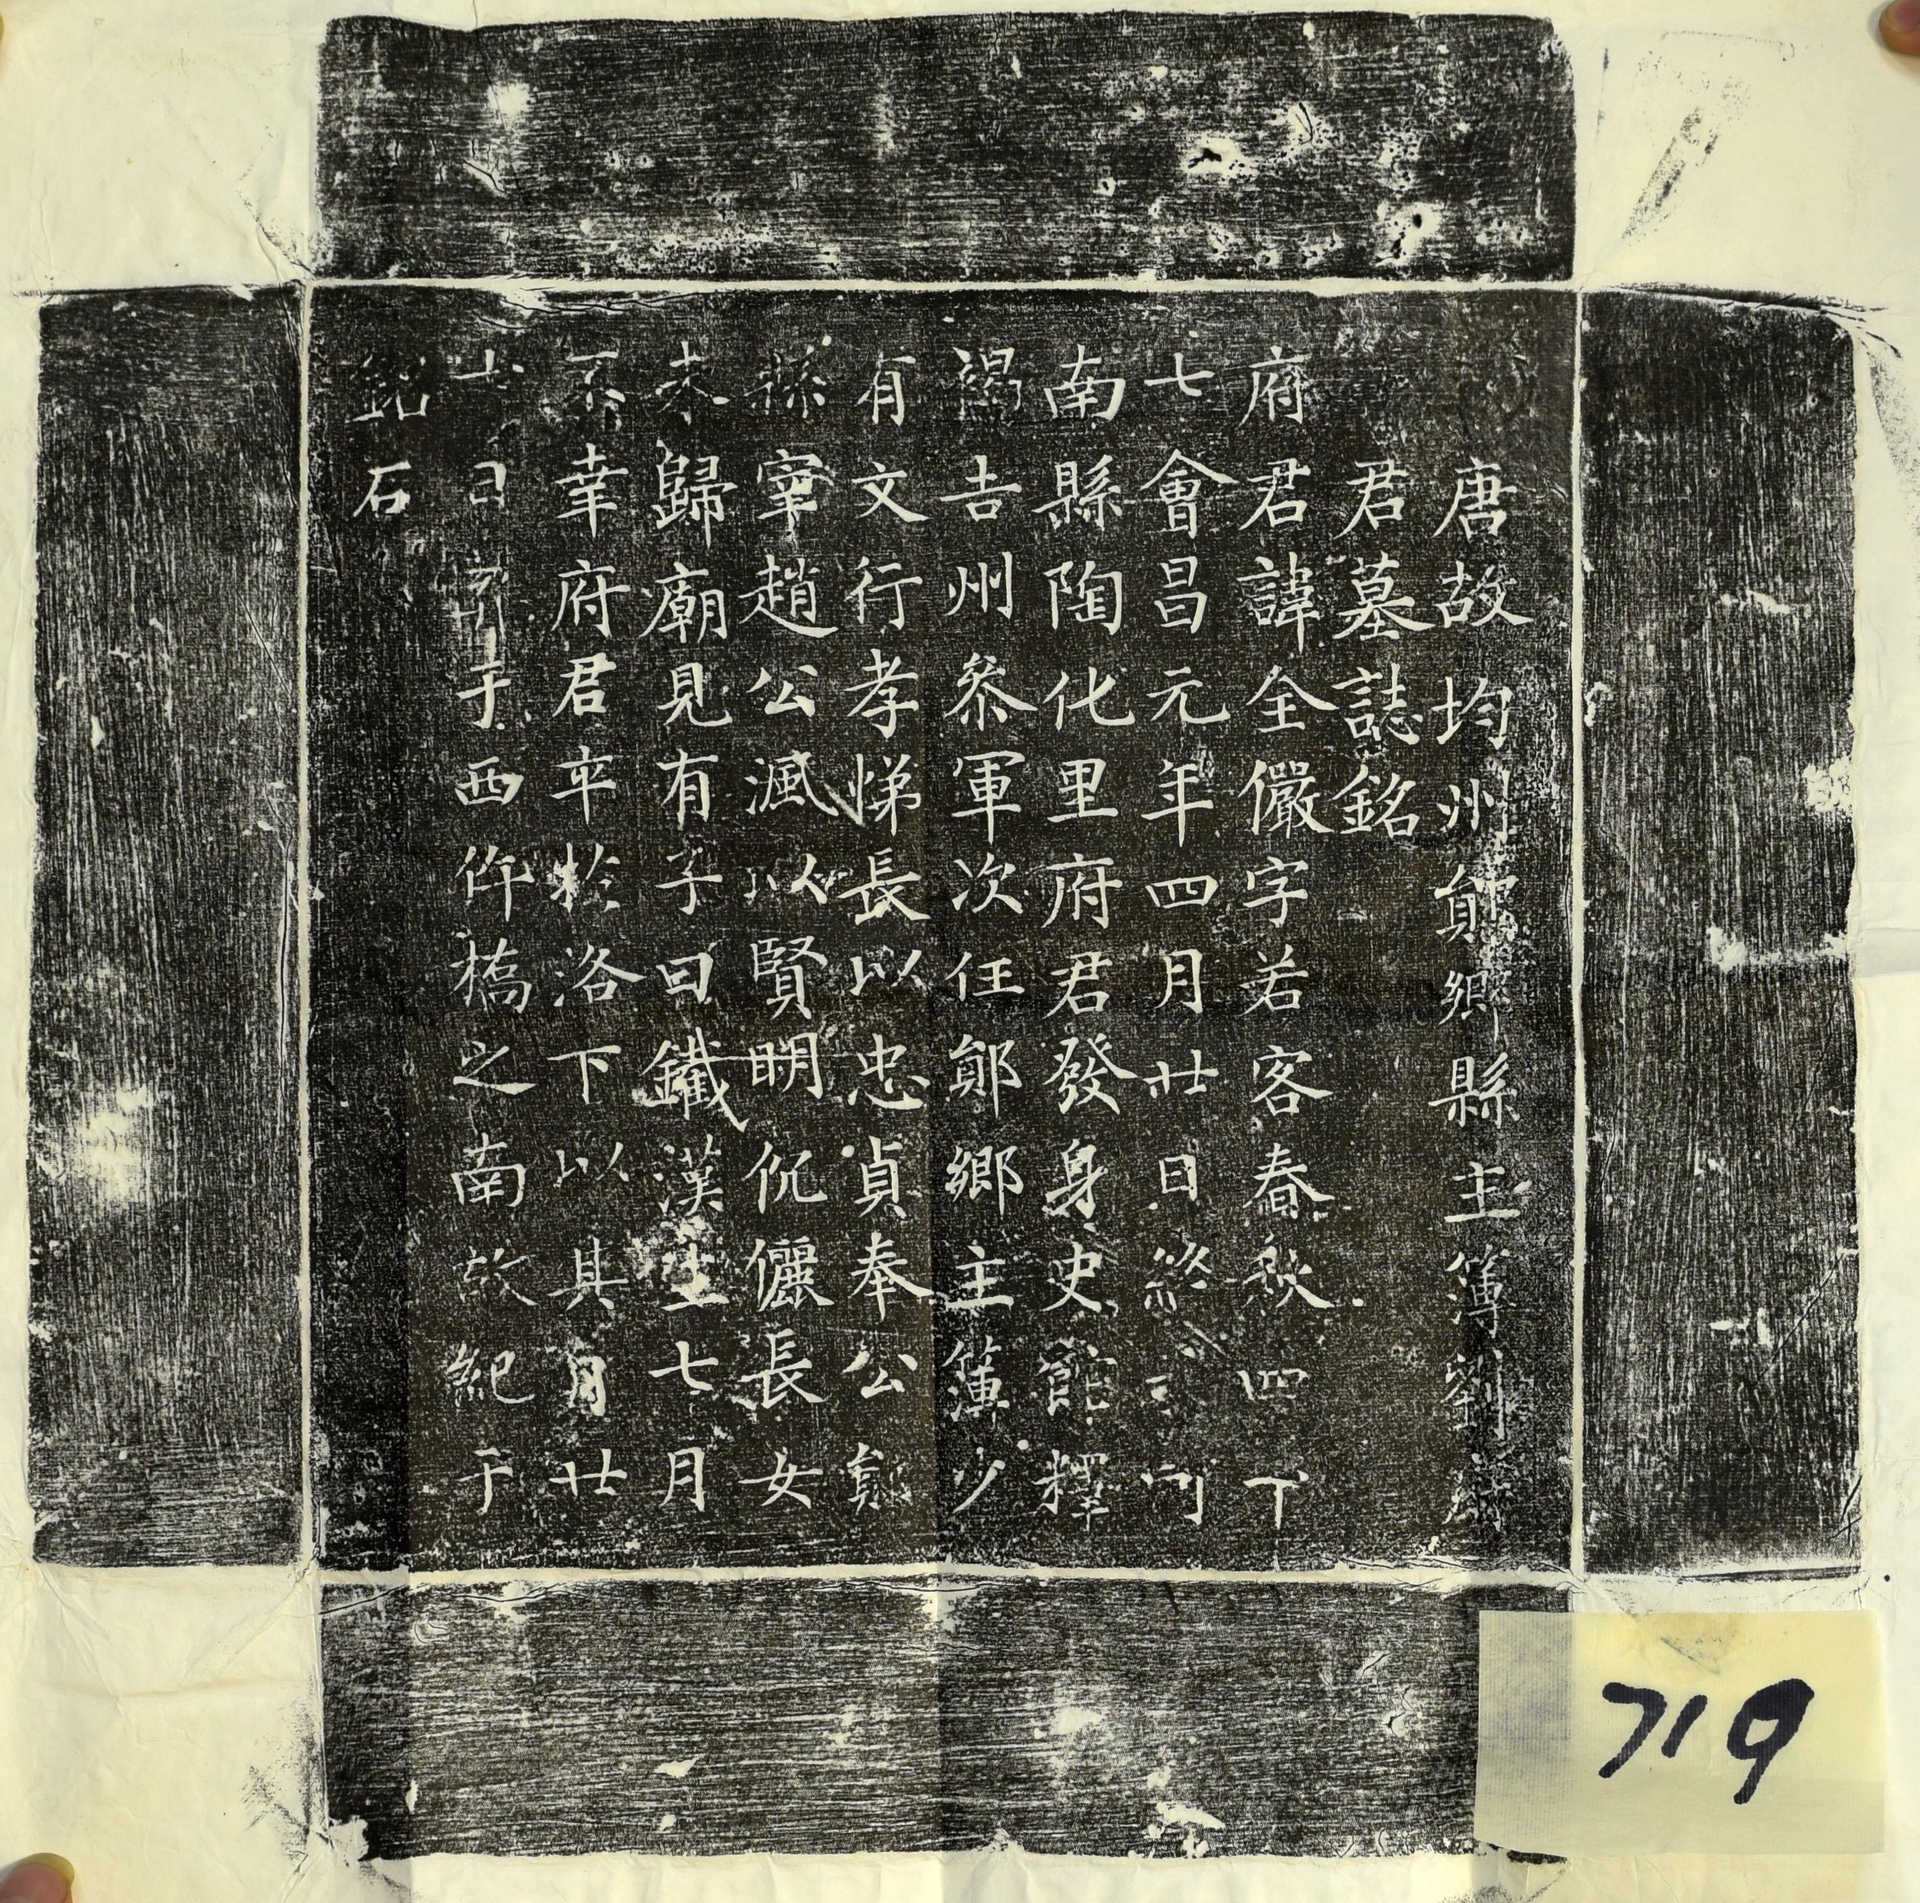 唐故均州鄖鄉縣主簿劉府
君墓誌銘
府君諱全儼字若客春秋四十
七會昌元年四月廿日終河
南縣陶化里府君發身史館釋
褐吉州叅軍次任鄖鄉主簿少
有文行孝悌長以忠貞奉公鄖
縣宰趙公渢以賢明伉儷長女
未歸廟見有子曰鐵漢生七月
不幸府君卒於洛下以其月廿
七日引于西仵橋之南故紀于
銘石
719